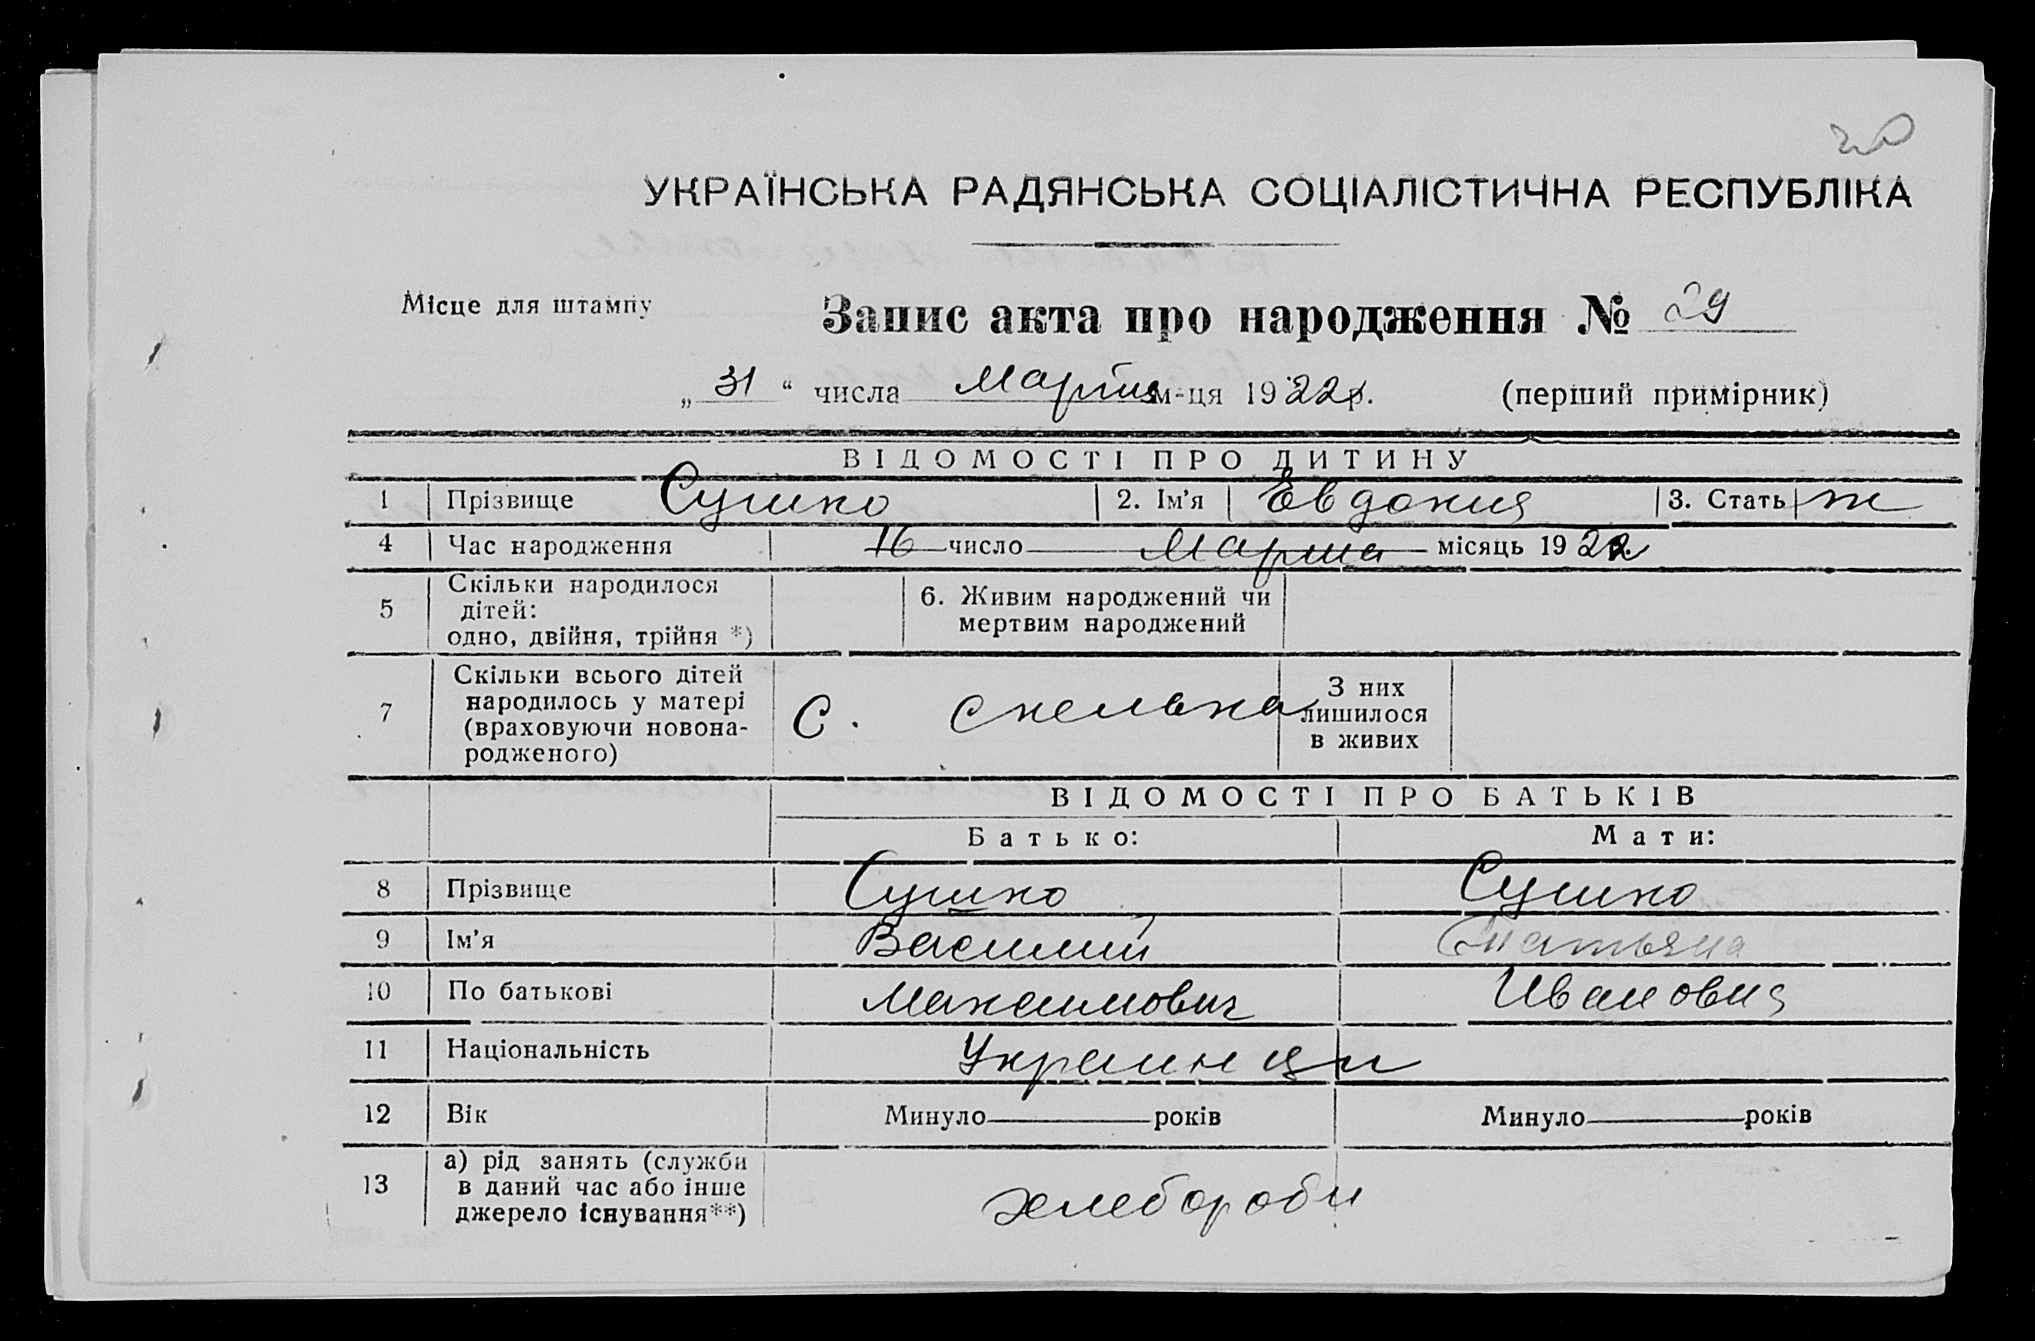 20
УКРАЇНСЬКА РАДЯНСЬКА СОЦІАЛІСТИЧНА РЕСПУБЛІКА
Місце для штампу
Запис акта про народження № 29
„ 31 “ числа Марта м-ця 1922 р. (перший примірник)
ВІДОМОСТІ ПРО ДИТИНУ
1 Прізвище Сушко 2. Ім’я Евдокия 3. Стать ж
4 Час народження 16 число Марта місяць 1922
5 Скільки народилося дітей: одно, двійня, трійня *) 6. Живим народжений чи мертвим народжений
7 Скільки всього дітей народилось у матері (враховуючи новонародженого) С. Скелька З них лишилося в живих
ВІДОМОСТІ ПРО БАТЬКІВ
Батько: Мати:
8 Прізвище Сушко Сушко
9 Ім’я Василий Татьяна
10 По батькові Максимович Ивановна
11 Національність Украинци
12 Вік Минуло років Минуло років
13 а) рід занять (служби в даний час або інше джерело існування**) хлебороби